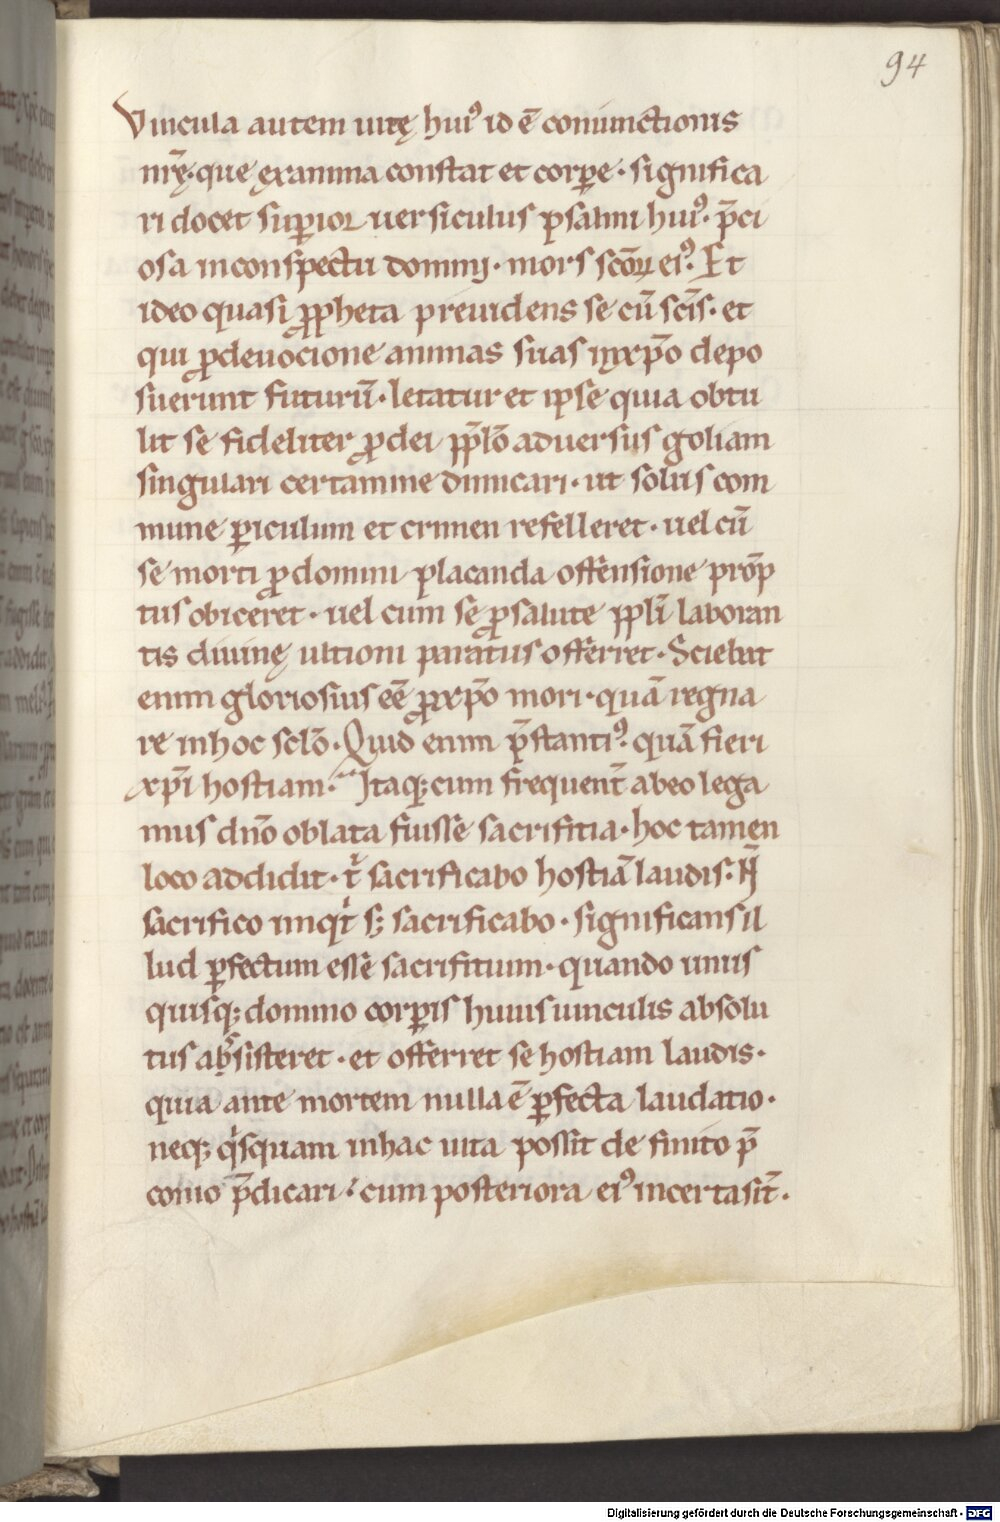 94
Vincula autem uitę hui᷒ id ē coniunctionis
nr̄ę· que exanima constat et corꝑe · significa
ri docet suꝑior uersiculus psalmi hui᷒· p̄ci
osa inconspectu dominj· mors sc̄oꝝ ei᷒. Et
ideo quasi ꝓpheta preuidens se cū sc̄is· et
qui ꝓdeuocione animas suas inxp̄o depo
suerunt futurū · letatur et ipse quia obtu
lit se fideliter ꝓdei pp̄lo aduersus goliam
singulari certamine dimicari · ut solus com
mune ꝑiculum et crimen refelleret · uel cū
se morti ꝓdomini placanda offensione prōp
tus obiceret · uel cum se ꝓsalute ppl̄i laboran
tis diuinę ultioni paratus offerret · Sciebat
enim gloriosius eē̄ ꝓxp̄o mori · quā regna
re inhoc sclō · Quid enim p̄stanti᷒· quā fieri
xp̄i hostiam · Itaq; cum frequent̄ abeo lega
mus dn̄o oblata fuisse sacrifitia · hoc tamen
loco addidit · t̉ sacrificabo hostiā laudis · N̄
sacrifico inqͥt s; sacrificabo · significans il
lud ꝑfectum esse sacrifitium · quando unus
quisq; domino corꝑis huius uinculis absolu
tus absisteret · et offerret se hostiam laudis ·
quia ante mortem nulla ē ꝑfecta laudatio ·
neq; qͥsquam inhac uita possit de finito p̄
conio p̄dicari · cum posteriora ei᷒ incerta sīt ·
Digitalisierung gefördert durch die Deutsche Forschungsgemeinschaft · DFG